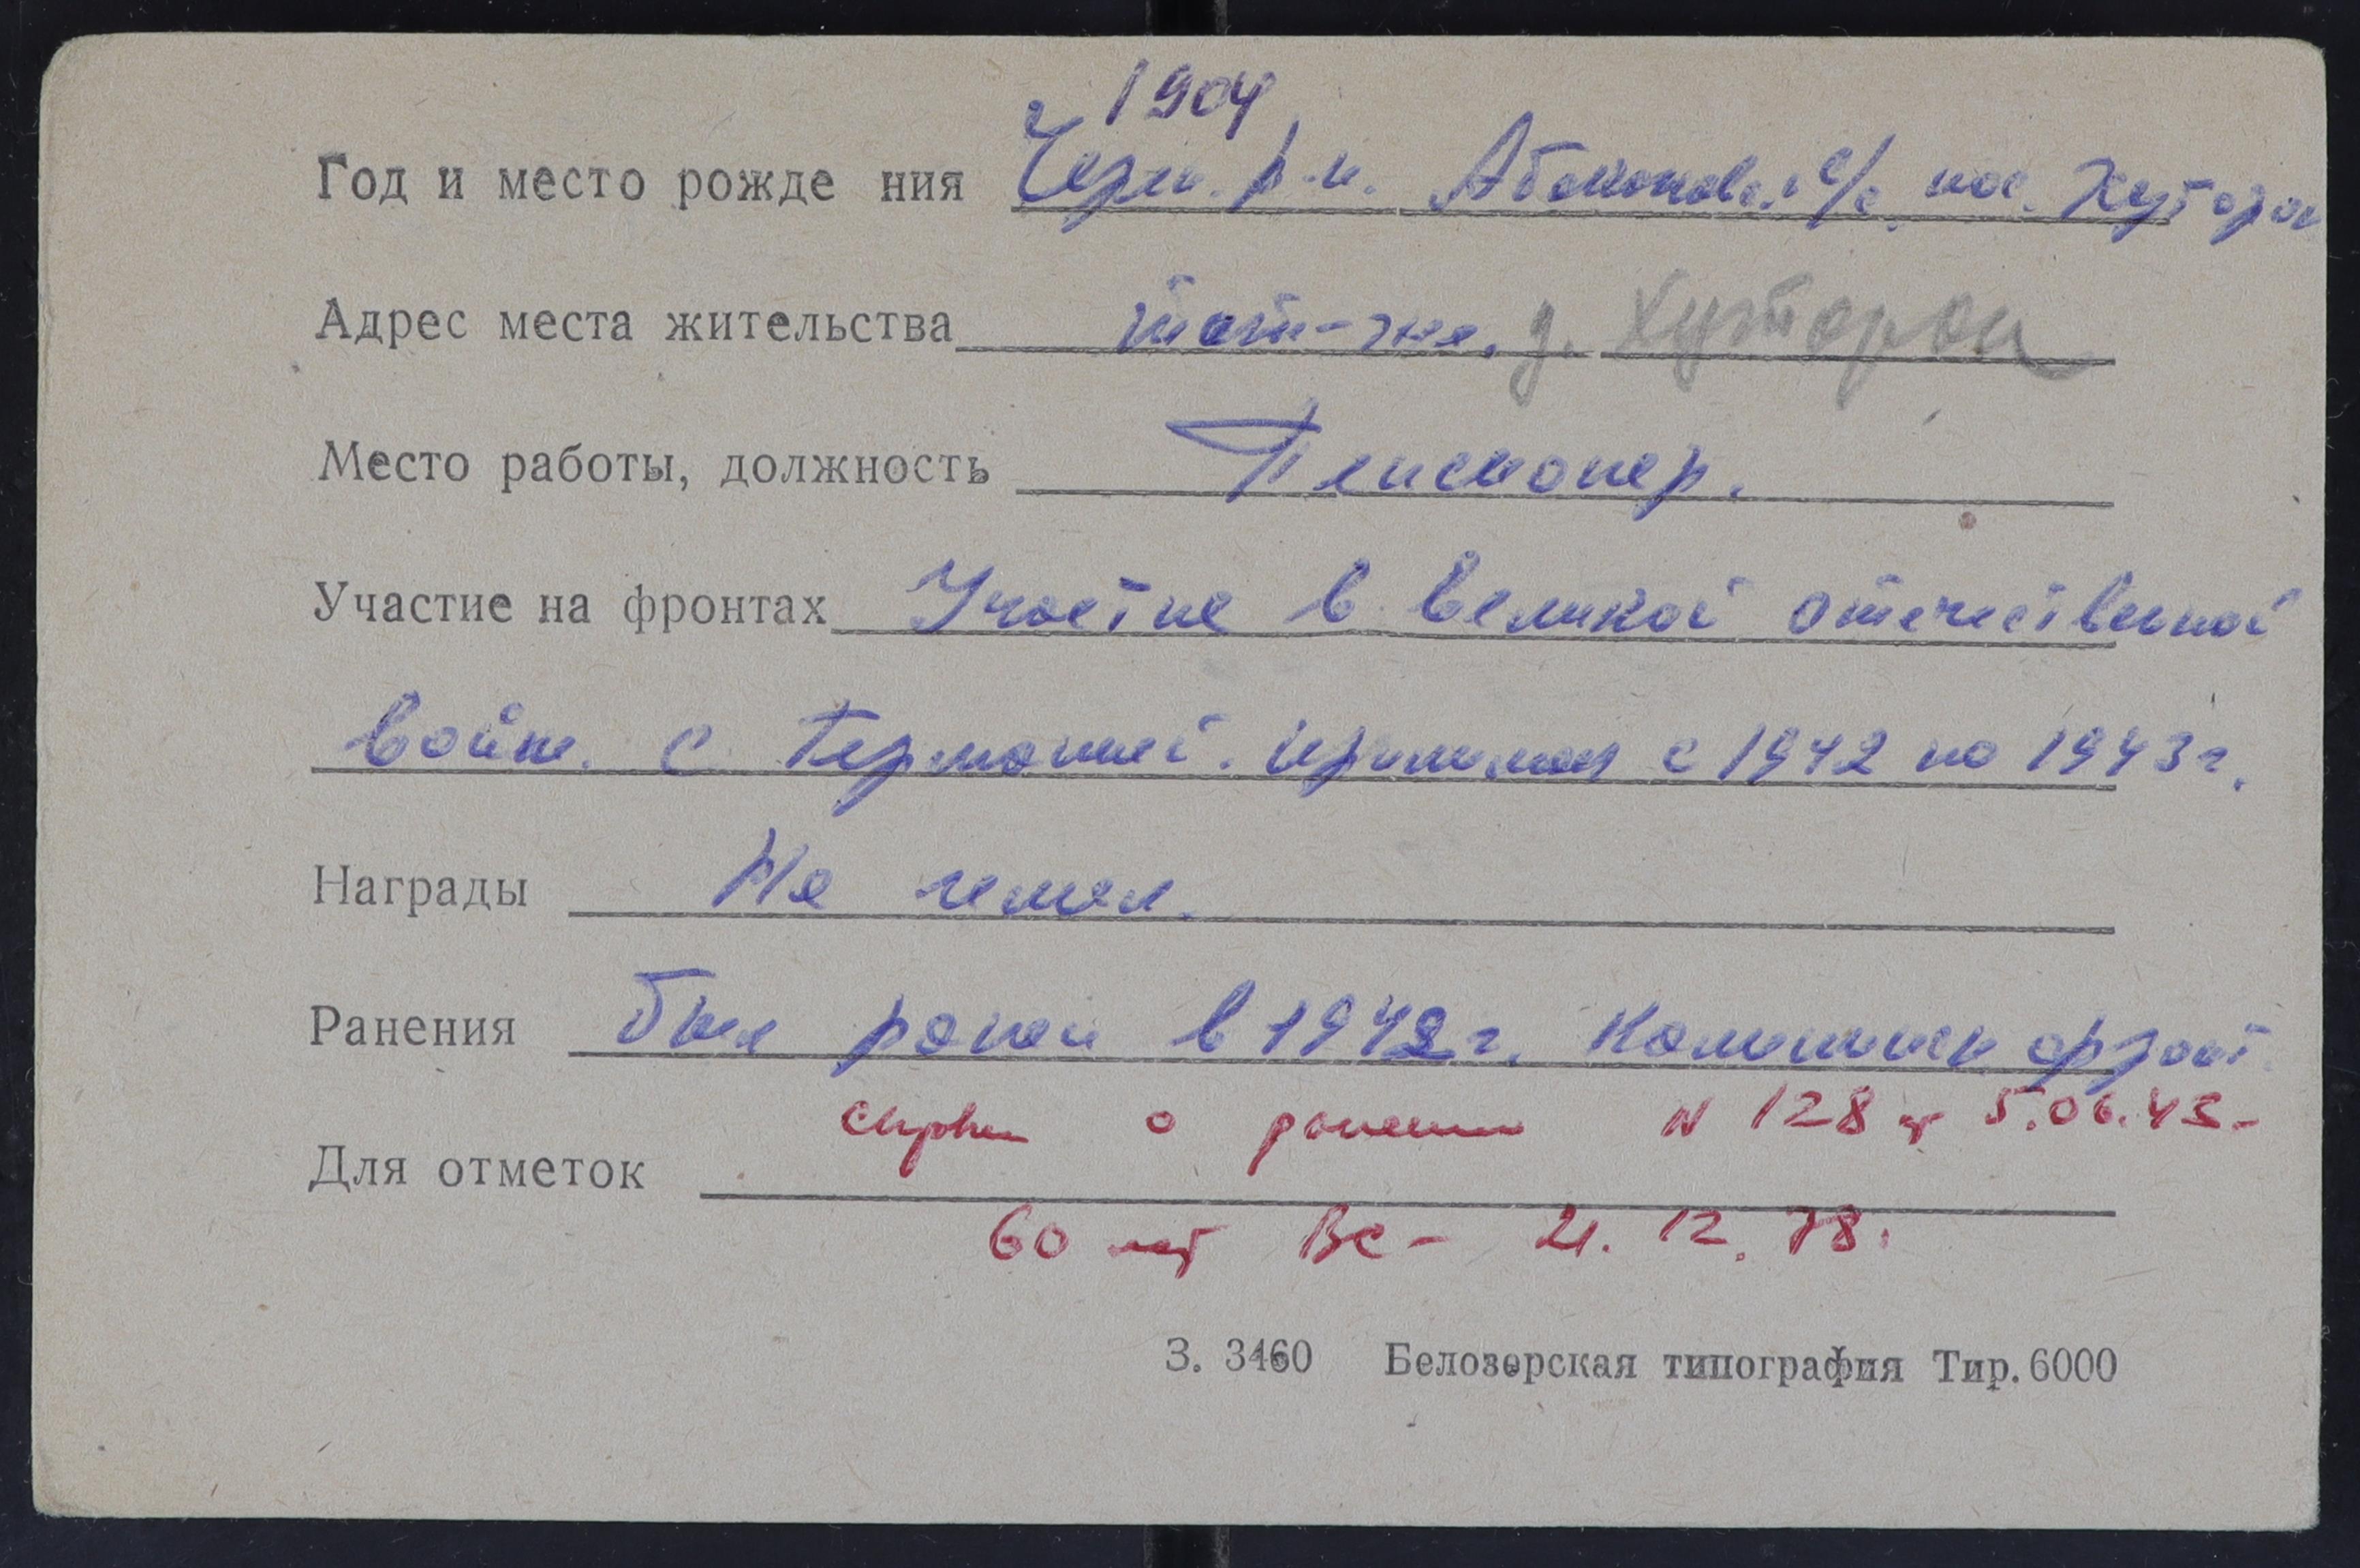 1904
Год и место рожде ния Черп. р-н. Абаканов. с/с, пос. Хуторок
Адрес места жительства там-же. д. Хуторок
Место работы, должность Пенсионер.
Участие на фронтах Участие в великой отечественной
войне. с Германией. принимал с 1942 по 1943 г.
Награды Не имел.
Ранения был ранен в 1942 г. Калининск фронт.
справка о ранении N 128 от 5.06.43-
Для отметок
60 лет ВС - 21. 12. 78.
З. 3460 Белозерская типография Тир. 6000